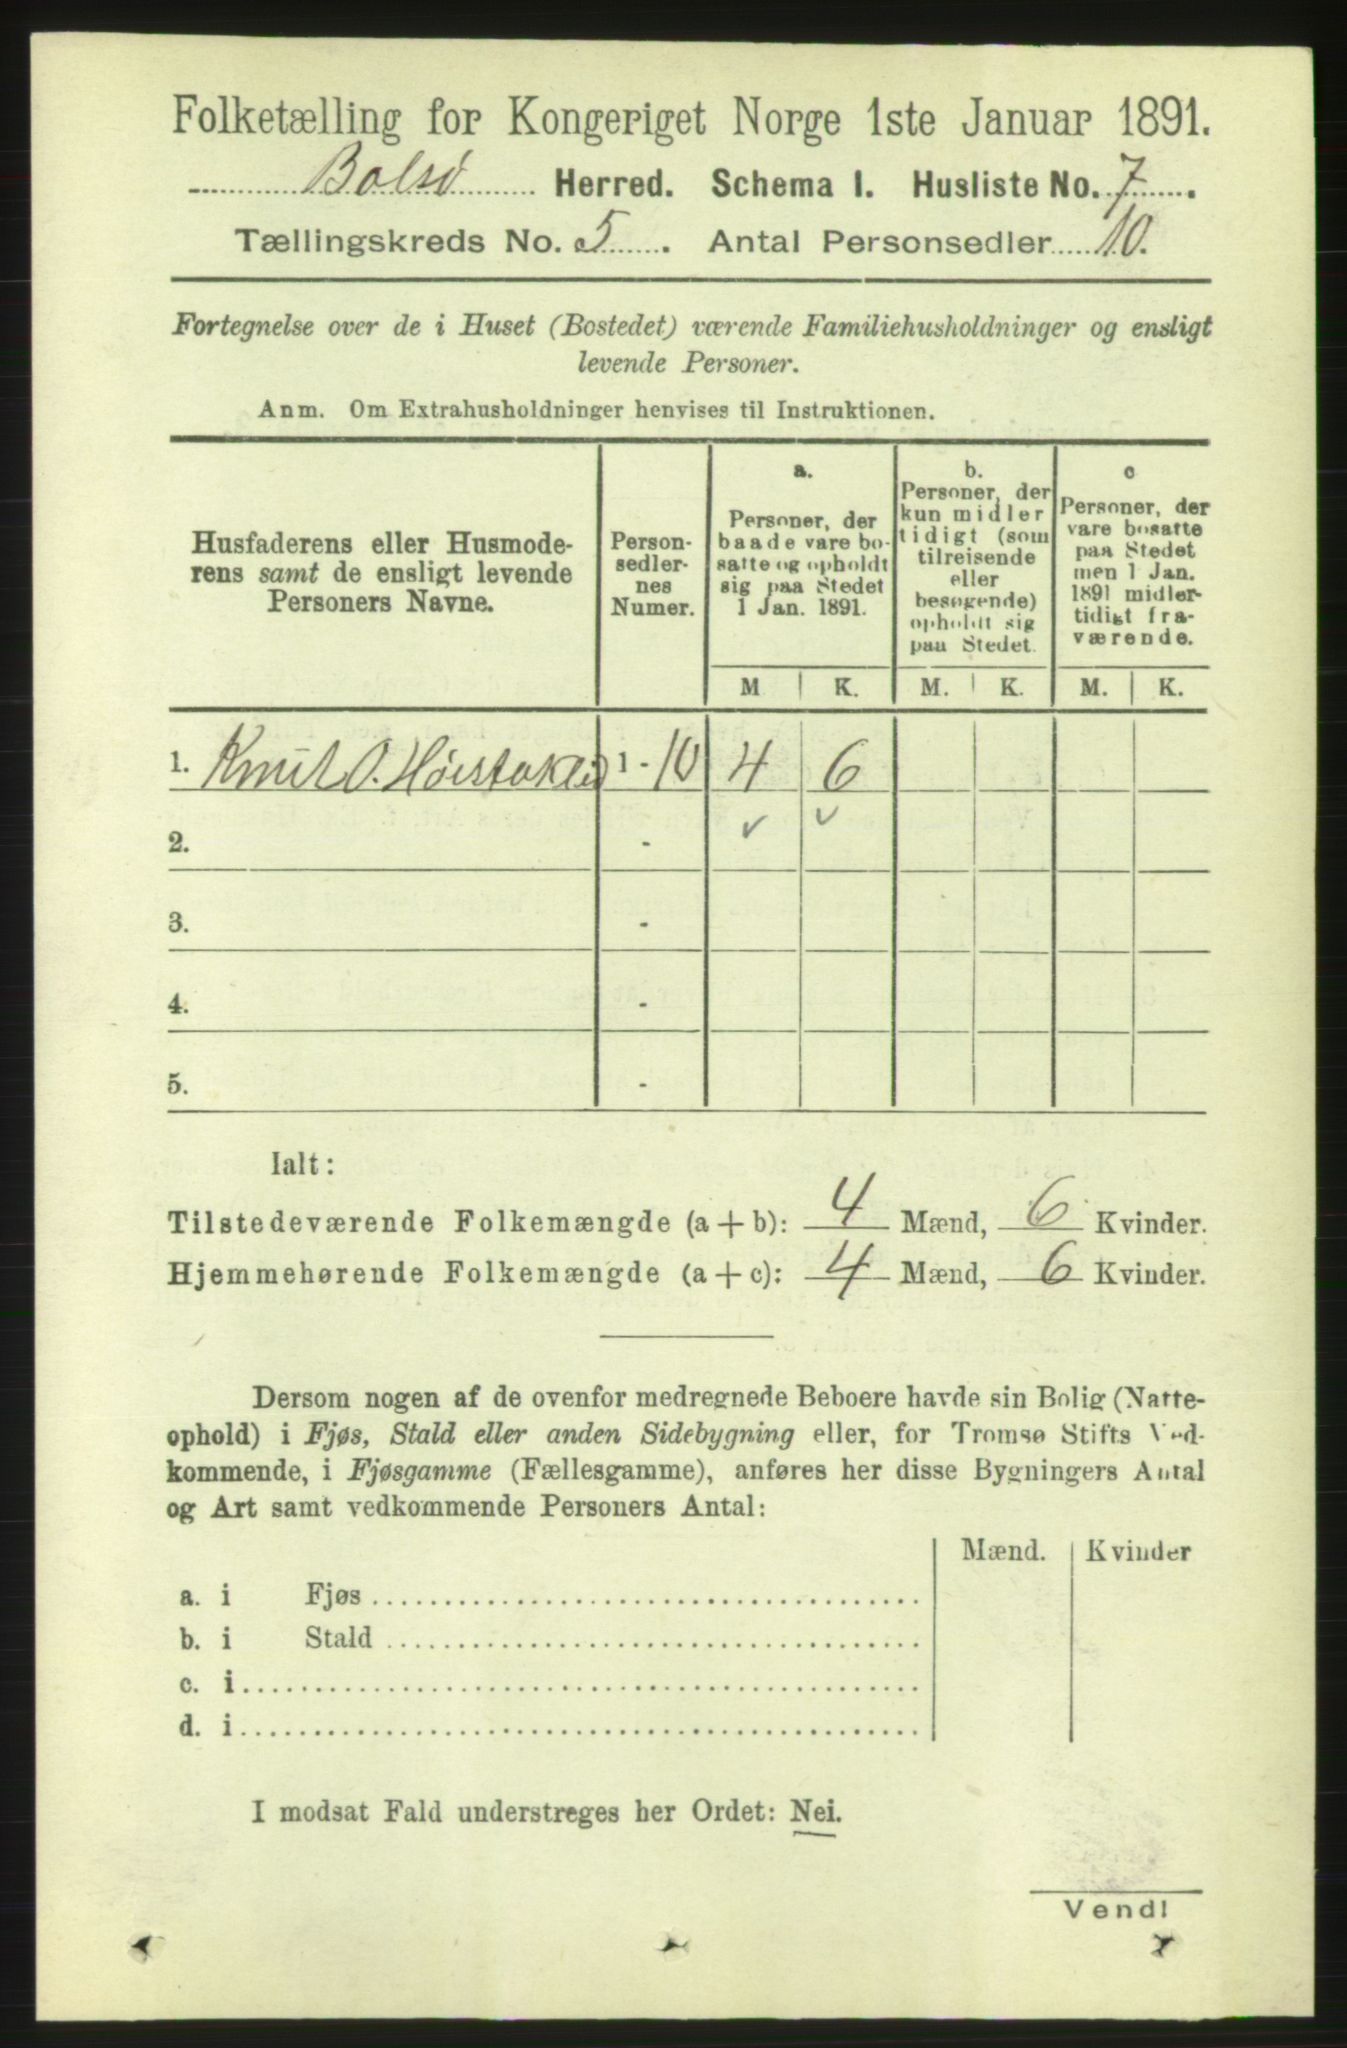 Folketælling for Kongeriget Norge 1ste Januar 1891.
Bolsø Herred. Schema I. Husliste No. 7.
Tællingskreds No. 5. Antal Personsedler 10.
Fortegnelse over de i Huset (Bostedet) værende Familiehusholdninger og ensligt
levende Personer.
Anm. Om Extrahusholdninger henvises til Instruktionen.
Husfaderens eller Husmode-
rens samt de ensligt levende
Personers Navne.
Person-
sedler-
nes
Numer.
a.
Personer, der
baade vare bo-
satte og opholdt
sig paa Stedet
1 Jan. 1891.
b.
Personer, der
kun midler
tidigt (som
tilreisende
eller
besøgende)
opholdt sig
paa Stedet.
c
Personer, der
vare bosatte
paa Stedet
men 1 Jan.
1891 midler-
tidigt fra-
værende.
M K. M. K. M. K.
1. Knut O. 1 - 10 4 6
2. - ✓ ✓
3. -
4. -
5. -
Ialt:
Tilstedeværende Folkemængde (a + b): 4 Mænd, 6 Kvinder.
Hjemmehørende Folkemængde (a + c): 4 Mænd, 6 Kvinder.
Dersom nogen af de ovenfor medregnede Beboere havde sin Bolig (Natte-
ophold) i Fjøs, Stald eller anden Sidebygning eller, for Tromsø Stifts Ved-
kommende, i Fjøsgamme (Fællesgamme), anføres her disse Bygningers Antal
og Art samt vedkommende Personers Antal:
Mænd. Kvinder
a. i Fjøs
b. i Stald
c. i
d. i
I modsat Fald understreges her Ordet: Nei.
Vend!